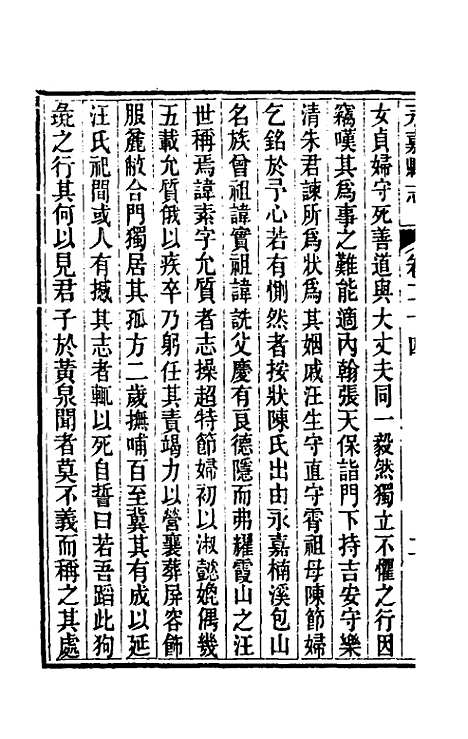 永嘉縣志 卷二十四
女貞婦守死善道與大丈夫同一毅然獨立不懼之行因
竊嘆其爲事之難能適內翰張天保詣門下持吉安守樂
清朱君諫所爲狀爲其姻戚汪生守直守霄祖母陳節婦
乞銘於予心若有惻然者按狀陳氏出由永嘉楠溪包山
名族曾祖諱實祖諱詵父慶有良德隱而弗耀霞山之汪
世稱焉諱素字允質者志操超特節婦初以淑懿娩偶幾
五載允質俄以疾卒乃躬任其責竭力以營襄葬屏容飾
服麄敝合門獨居其孤方二歲撫哺百至冀其有成以延
汪氏祀間或人有撼其志者輒以死自誓曰若吾蹈此狗
彘之行其何以見君子於黃泉聞者莫不義而稱之其處